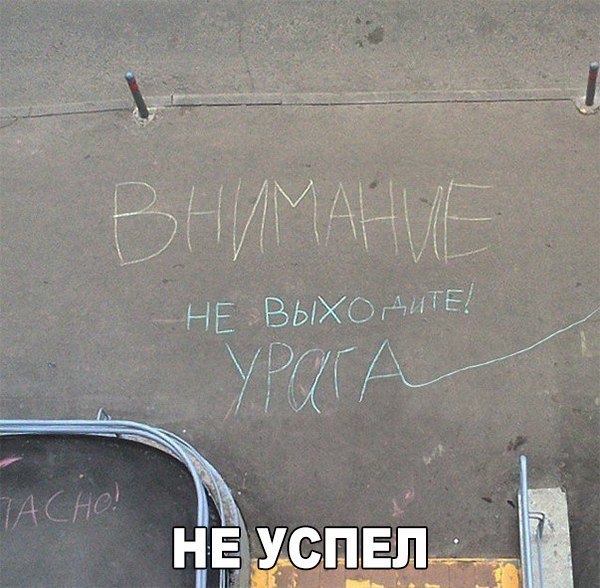 ВНИМАНИЕ
НЕ ВЫХОДИТЕ!
УРАГА
ПАСНО!
НЕ УСПЕЛ